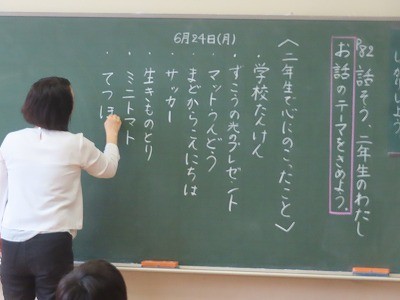 6月24日(月)
P82 話そう、二年生のわたし
お話のテーマをきめよう。
〈二年生で心にのこったこと〉
・学校たんけん
・ずこうの光のプレゼント
・マットうんどう
・まどからこんにちは
・サッカー
・生きものとり
・ミニトマト
・てつぼ